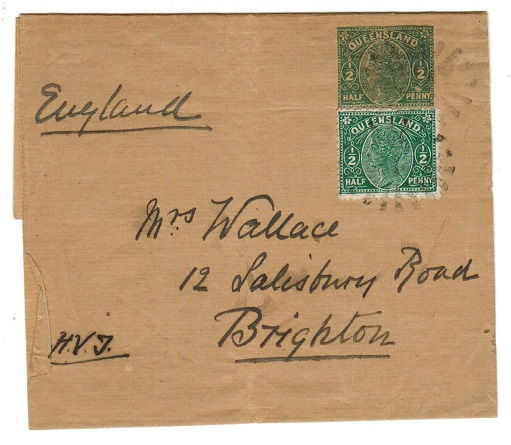 QUEENSLAND
½ ½
HALF PENNY
QUEENSLAND
½ ½
HALF PENNY
England
Mrs Wallace
12 Salisbury Road
Brighton
H.V.J.